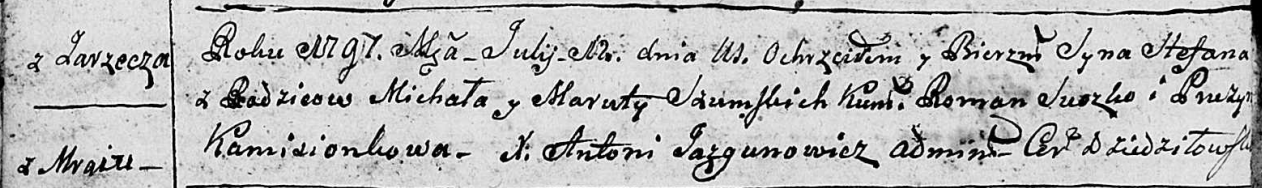 z Zarzecza
Roku 1797. Mca July dnia Ochrzciłem y Bierzm Syna Stefana
z Rodzicow Michała y Maruty Szumskich Kum: Roman Suszko i
Kamizionkowa - X. Antoni Jazgunowicz Admin Cer Dziedziłows
z Mrain -